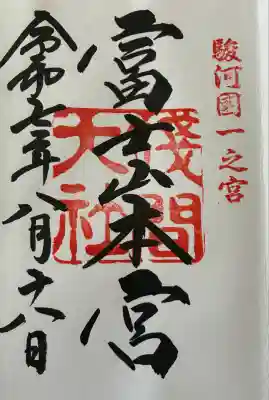 駿河國一之宮
富士山本宮
淺間
大社
令和七年八月十八日